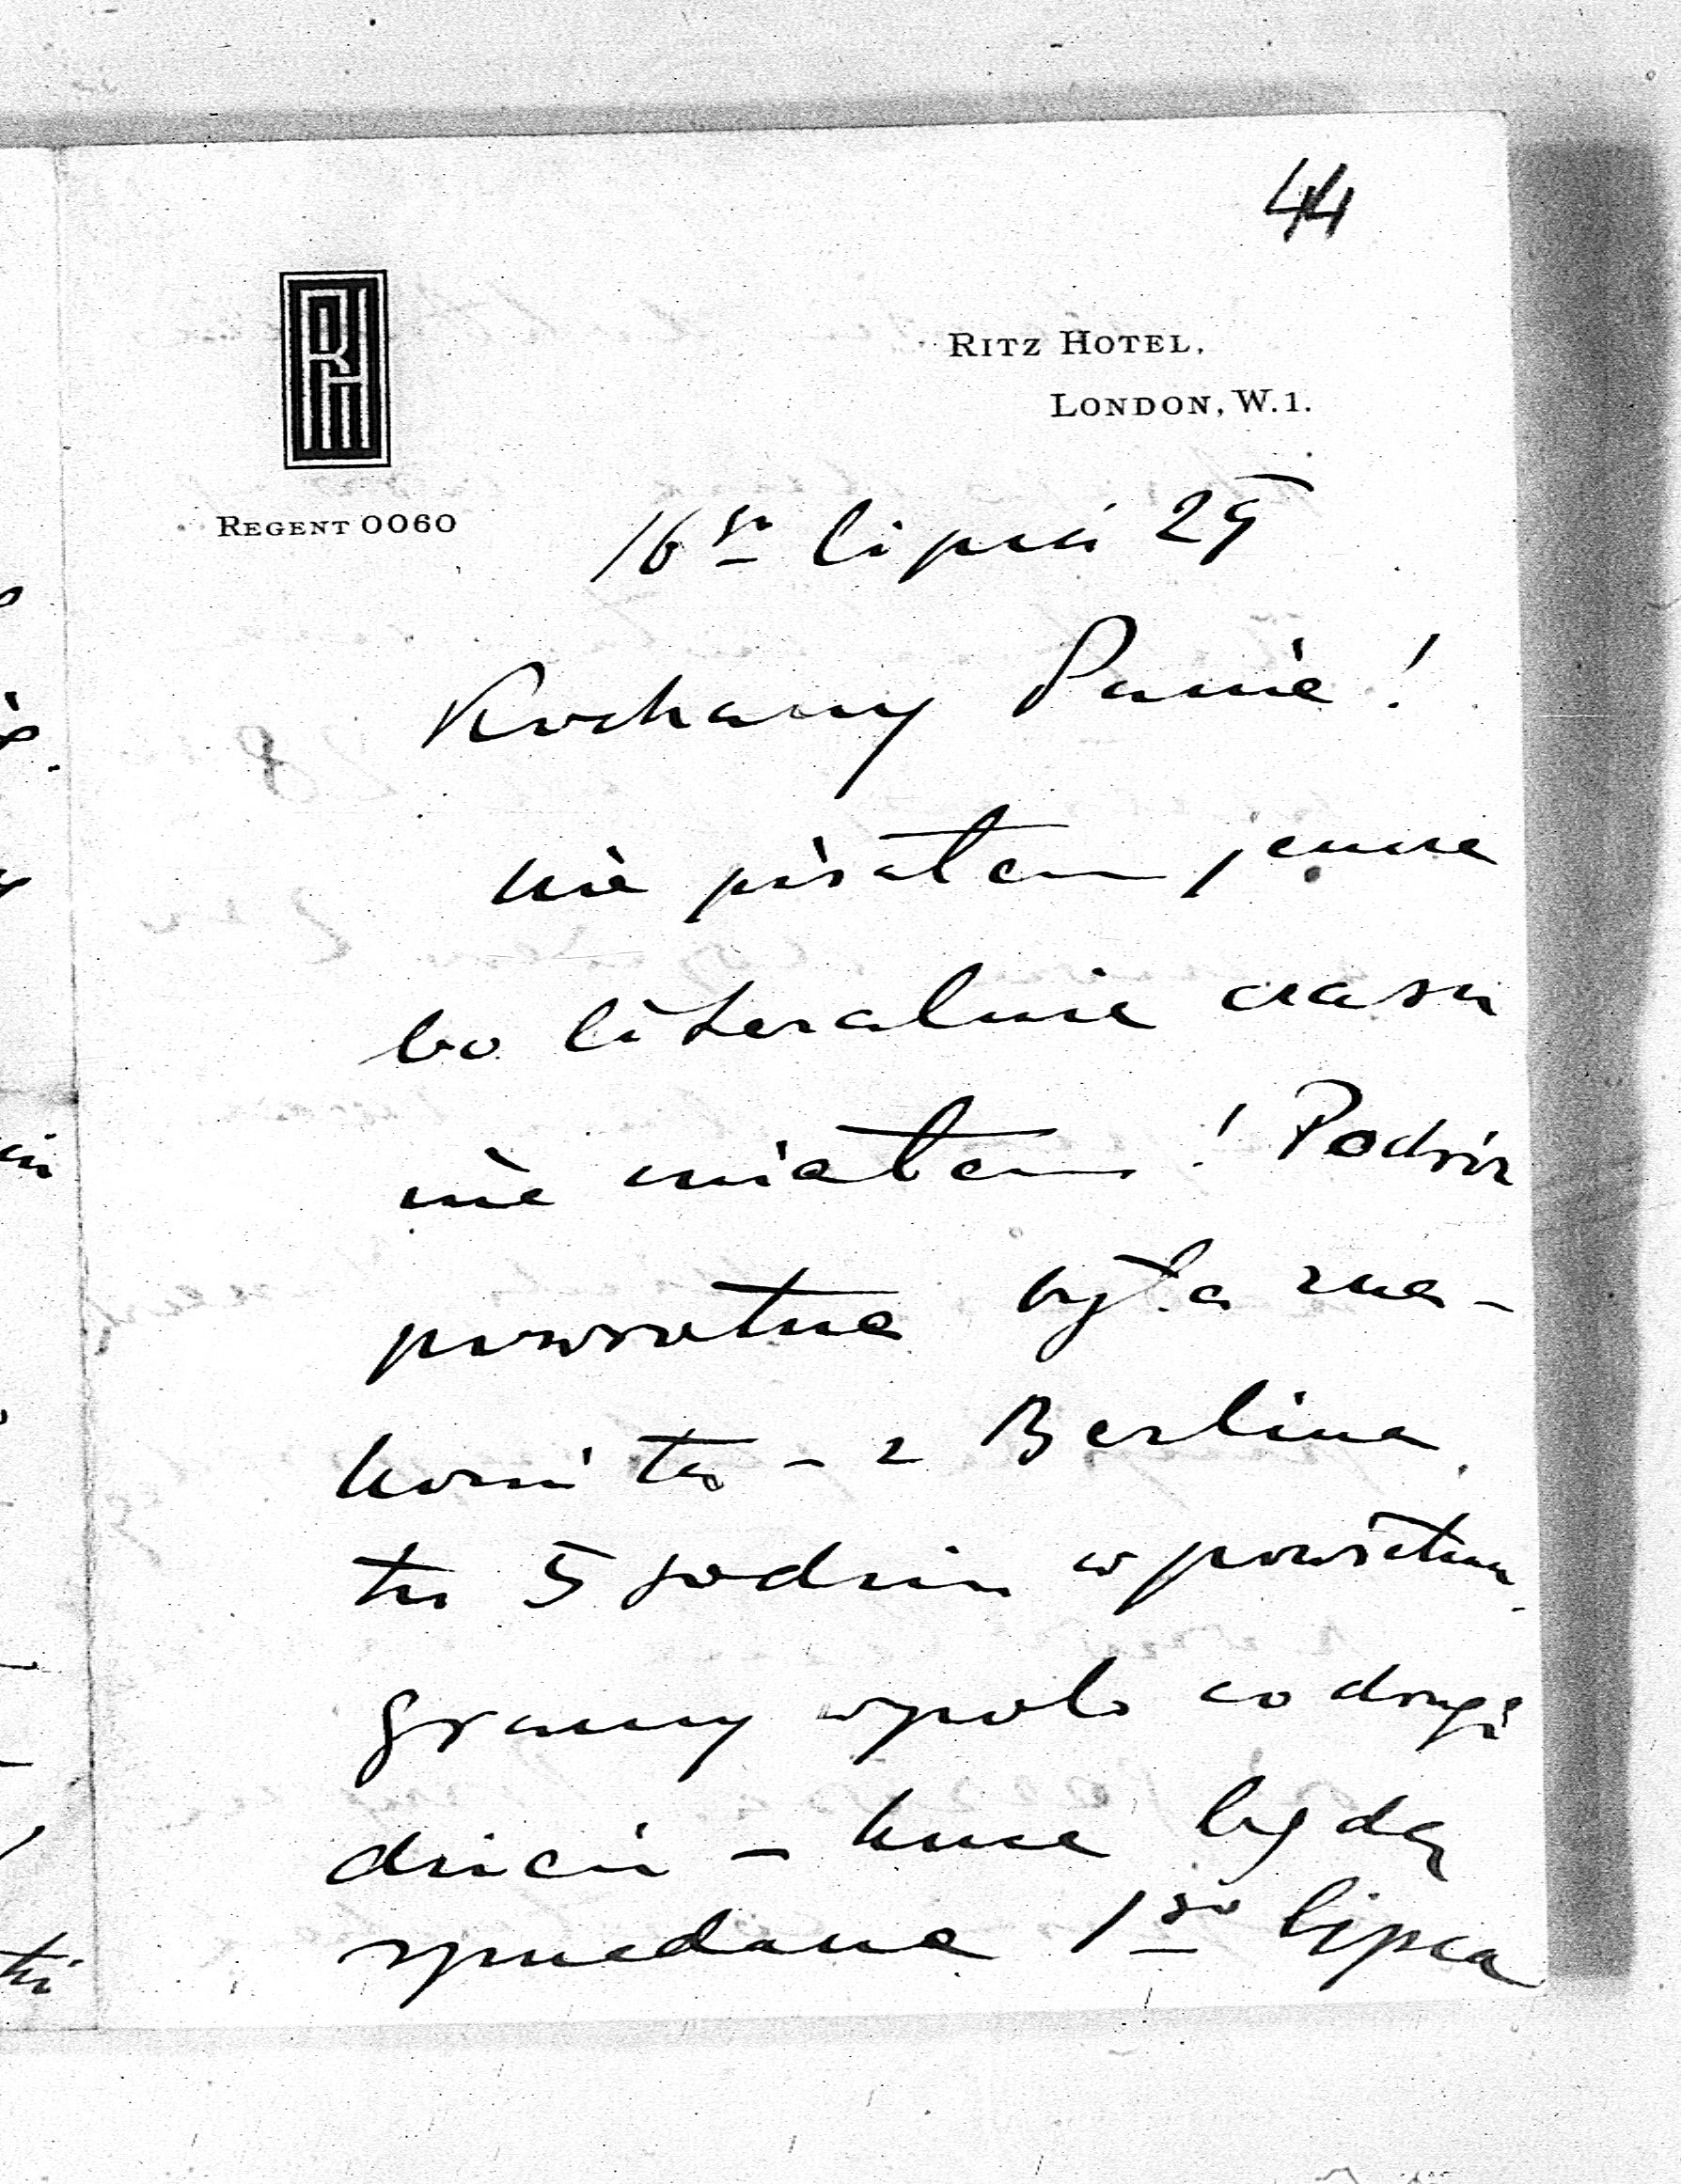 44
RITZ HOTEL,
LONDON, W.1.
REGENT 0060
16go lipca 29
Kochany Panie!
nie pisałem
bo literalnie czasu
nie miałem! Podróż
powrotna była zna-
komita - z Berlina
tu 5 godzin w powietrzu
gramy w polo co drugi
dzień - będą
sprzedane 1go lipca